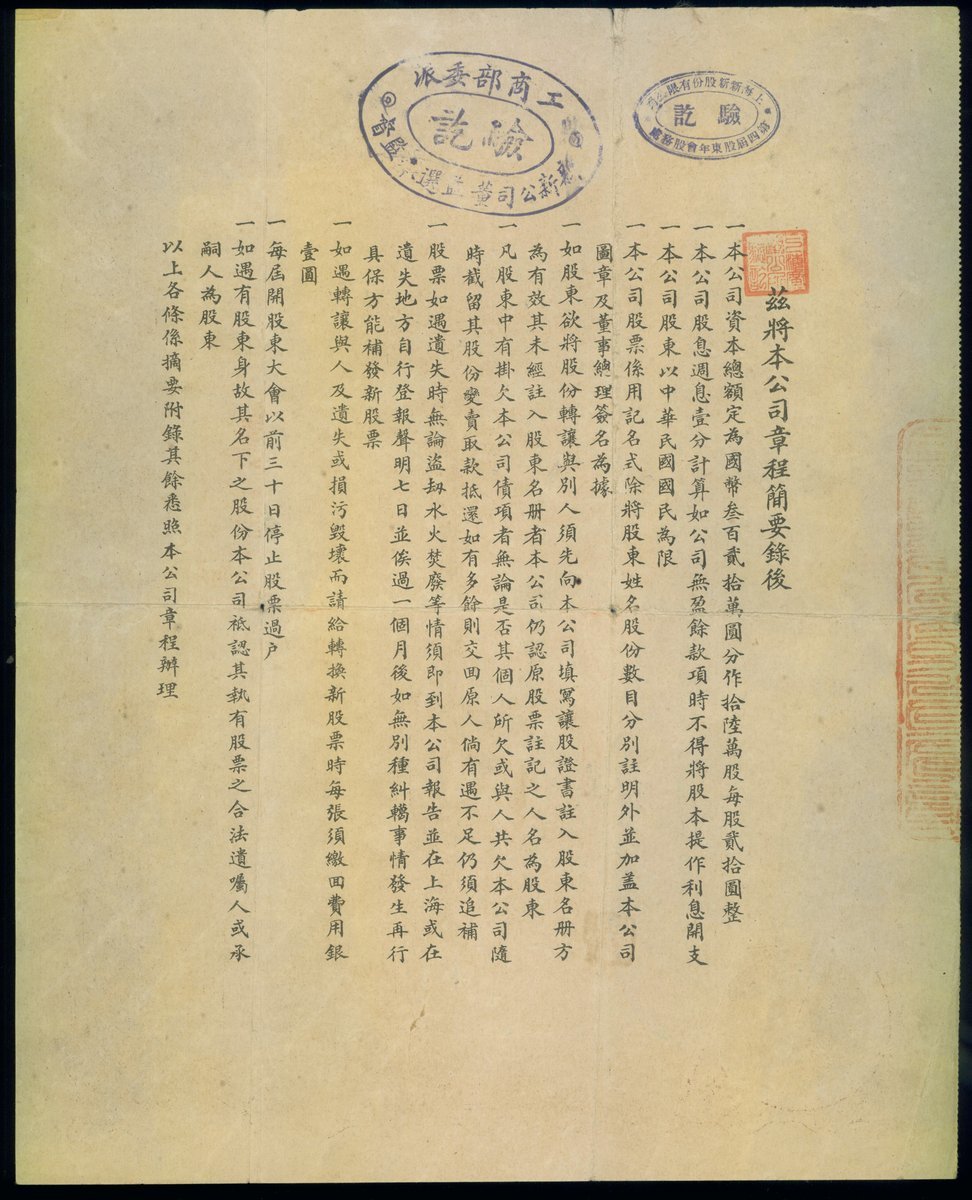 工商部委派
驗訖
新新公司董監選
上海新新股份有限公司
驗訖
第四屆股東年會股務處
茲將本公司章程簡要錄後
一本公司資本總額定為國幣叁百貳拾萬圓分作拾陸萬股每股貳拾圓整
一本公司股息週息壹分計算如公司無盈餘款項時不得將股本提作利息開支
一本公司股東以中華民國國民為限
一本公司股票係用記名式除將股東姓名股份數目分別註明外並加盖本公司
圖章及董事總理簽名為據
一如股東欲將股份轉讓與別人須先向本公司填寫讓股證書註入股東名册方
為有效其未經註入股東名册者本公司仍認原股票註記之人名為股東
一凡股東中有掛欠本公司債項者無論是否其個人所欠或與人共欠本公司隨
時截留其股份變賣取款抵還如有多餘則交回原人倘有遇不足仍須追補
一股票如遇遺失時無論盜劫水火焚廢等情須即到本公司報告並在上海或在
遺失地方自行登報聲明七日並俟過一個月後如無別種糾轕事情發生再行
具保方能補發新股票
一如遇轉讓與人及遺失或損污毀壞而請給轉換新股票時每張須繳回費用銀
壹圓
一每屆開股東大會以前三十日停止股票過户
一如遇有股東身故其名下之股份本公司祗認其執有股票之合法遺囑人或承
嗣人為股東
以上各條係摘要附錄其餘悉照本公司章程辦理